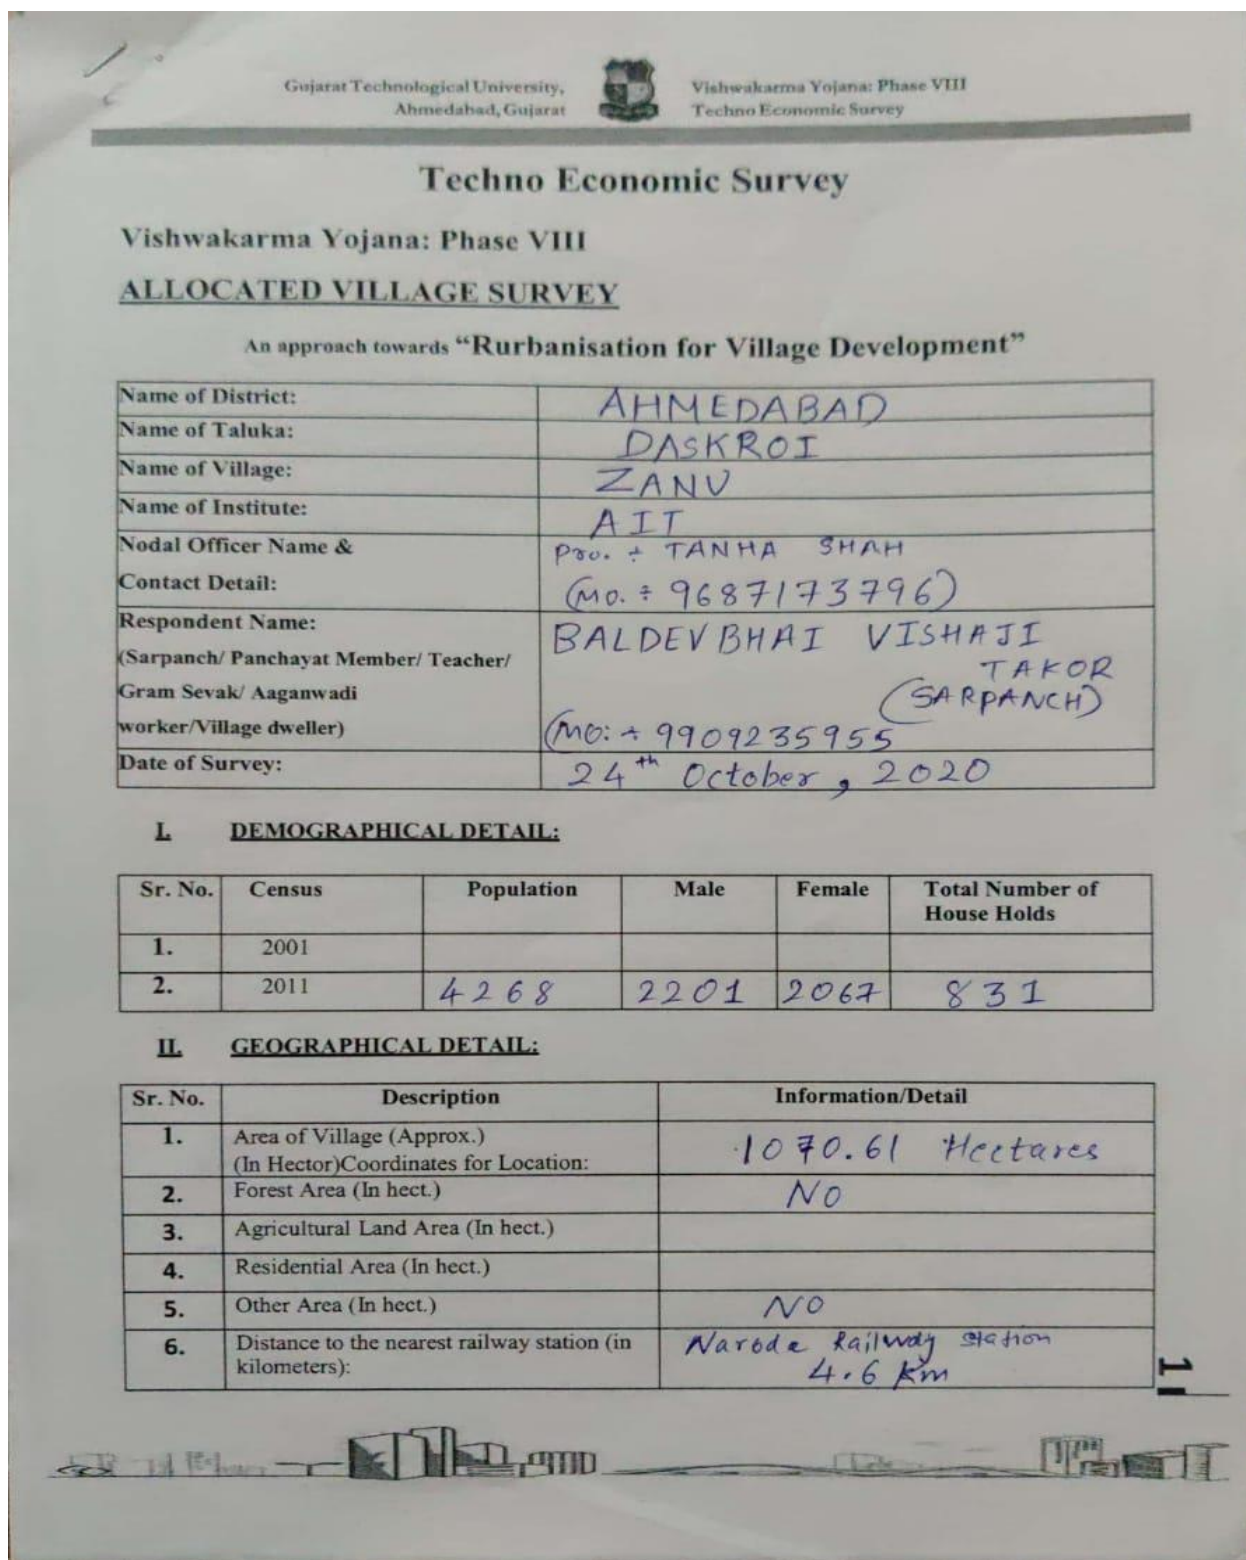 Gujarat Technological University,
Ahmedabad, Gujarat
Vishwakarma Yojana: Phase VIII
Techno Economic Survey
Techno Economic Survey
Vishwakarma Yojana: Phase VIII
ALLOCATED VILLAGE SURVEY
An approach towards “Rurbanisation for Village Development”
Name of District: AHMEDABAD
Name of Taluka: DASKROI
Name of Village: ZANU
Name of Institute: AIT
Nodal Officer Name & Pro. ÷ TANHA SHAH
Contact Detail: (Mo. ÷ 9687173796)
Respondent Name: BALDEVBHAI VISHAJI
(Sarpanch/ Panchayat Member/ Teacher/ TAKOR
Gram Sevak/ Aaganwadi (SARPANCH)
worker/Village dweller) (Mo: ÷ 9909235955
Date of Survey: 24th October, 2020
I. DEMOGRAPHICAL DETAIL:
Sr. No. Census Population Male Female Total Number of
House Holds
1. 2001
2. 2011 4268 2201 2067 831
II. GEOGRAPHICAL DETAIL:
Sr. No. Description Information/Detail
1. Area of Village (Approx.)
(In Hector)Coordinates for Location: 1070.61 Hectares
2. Forest Area (In hect.) NO
3. Agricultural Land Area (In hect.)
4. Residential Area (In hect.)
5. Other Area (In hect.) NO
6. Distance to the nearest railway station (in Naroda Railway station
kilometers): 4.6 Km
1